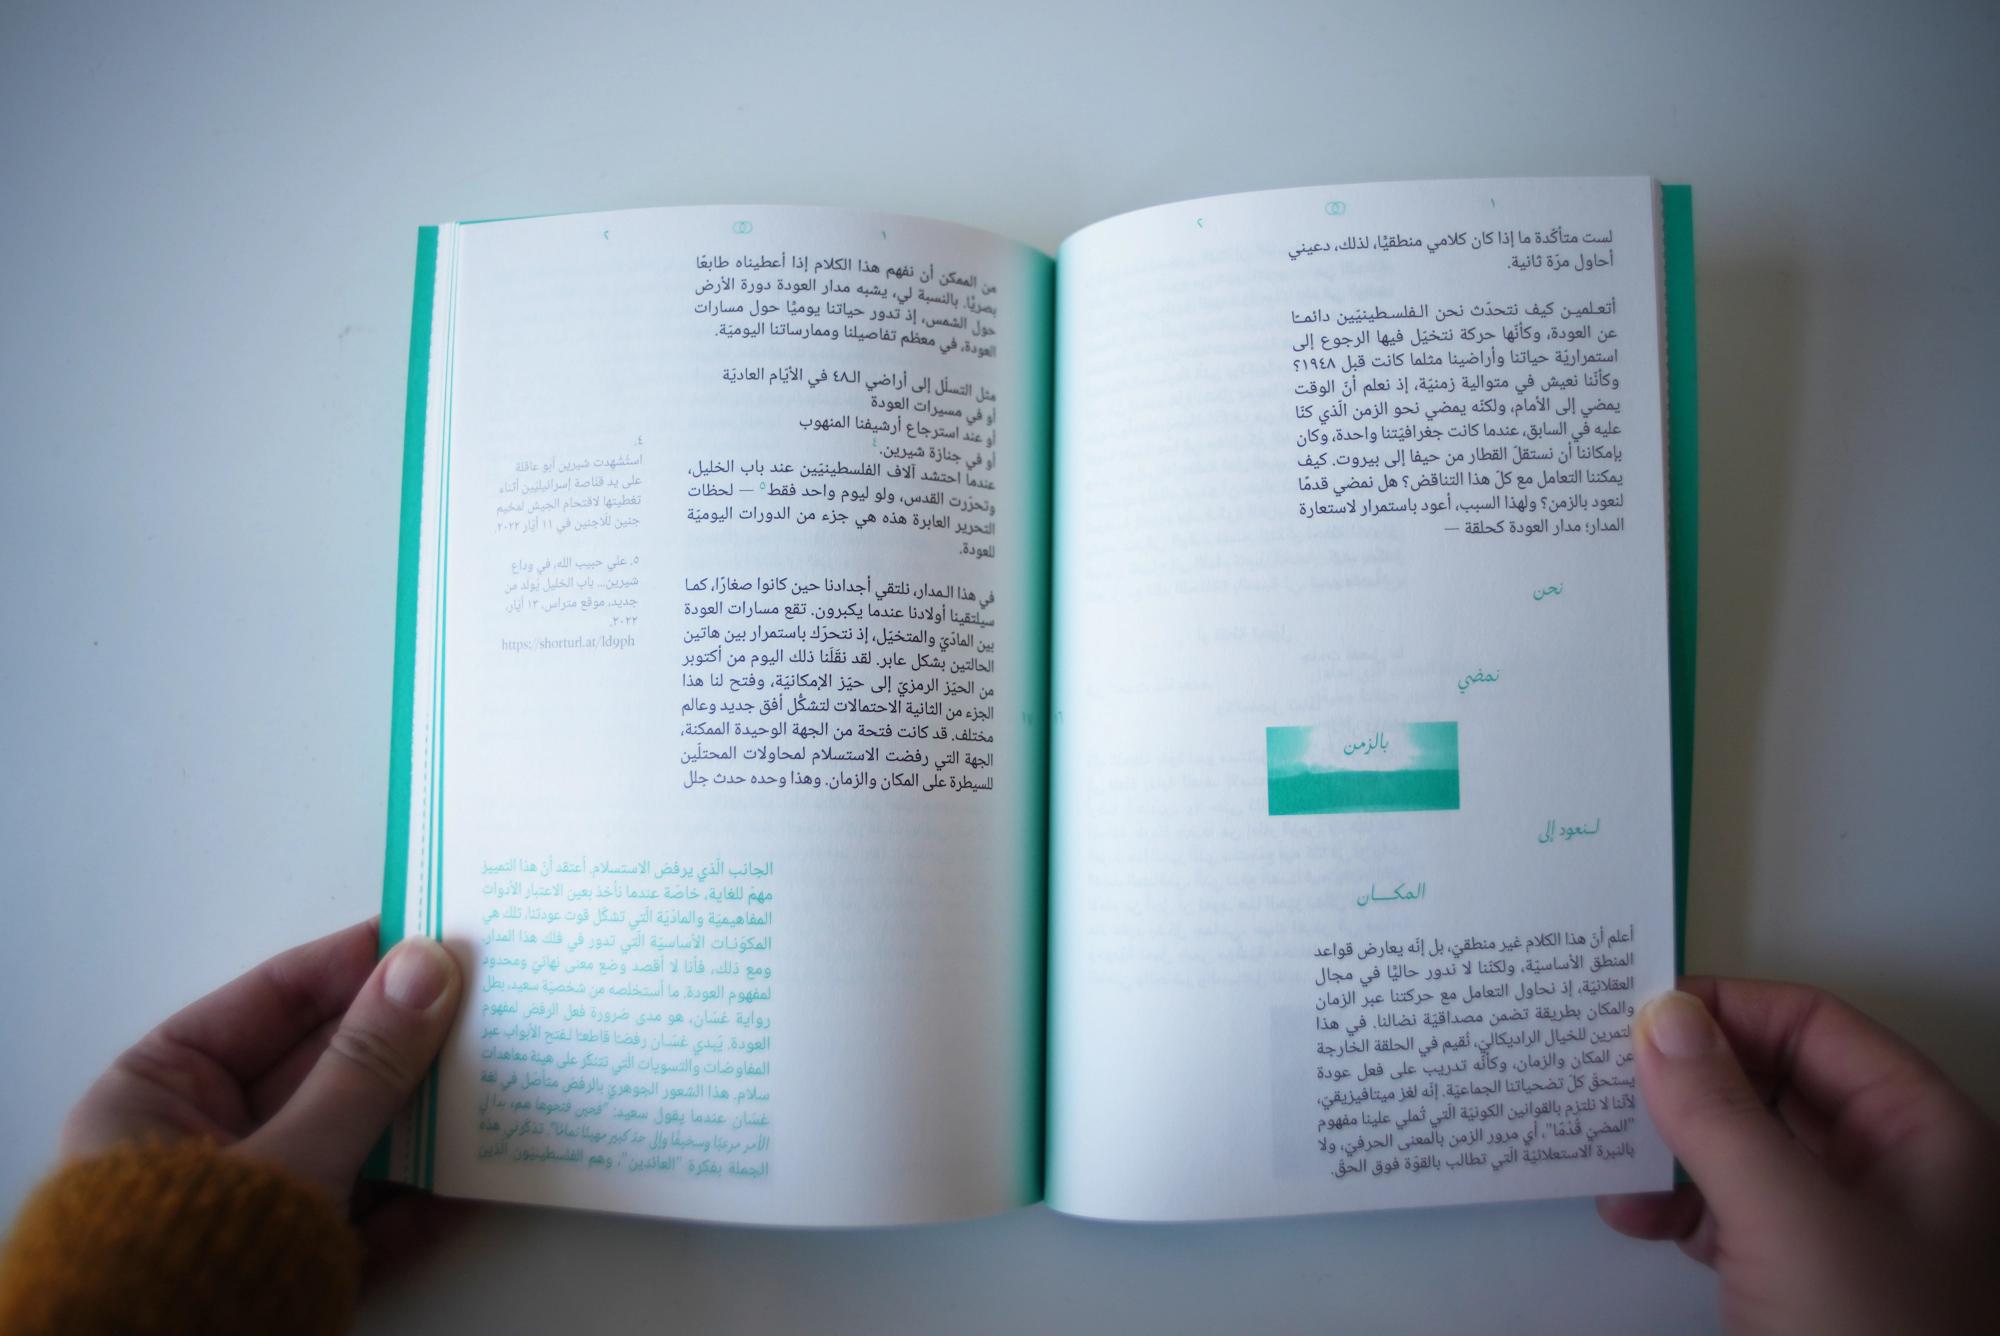 ١
٢
لست متأكّدة ما إذا كان كلامي منطقيًّا، لذلك، دعيني
أحاول مرّة ثانية.
أتعلمين كيف نتحدّث نحن الفلسطينيّين دائمًا
عن العودة، وكأنّها حركة نتخيّل فيها الرجوع إلى
استمراريّة حياتنا وأراضينا مثلما كانت قبل ١٩٤٨؟
وكأنّنا نعيش في متوالية زمنيّة، إذ نعلم أنّ الوقت
يمضي إلى الأمام، ولكنّه يمضي نحو الزمن الّذي كنّا
عليه في السابق، عندما كانت جغرافيّتنا واحدة، وكان
بإمكاننا أن نستقلّ القطار من حيفا إلى بيروت. كيف
يمكننا التعامل مع كلّ هذا التناقض؟ هل نمضي قدمًا
لنعود بالزمن؟ ولهذا السبب، أعود باستمرار لاستعارة
المدار؛ مدار العودة كحلقة —
نحن
نمضي
بالزمن
لنعود إلى
المكان
أعلم أنّ هذا الكلام غير منطقيّ، بل إنّه يعارض قواعد
المنطق الأساسيّة، ولكنّنا لا ندور حاليًّا في مجال
العقلانيّة، إذ نحاول التعامل مع حركتنا عبر الزمان
والمكان بطريقة تضمن مصداقيّة نضالنا. في هذا
التمرين للخيال الراديكاليّ، نُقيم في الحلقة الخارجة
عن المكان والزمان، وكأنّه تدريب على فعل عودة
يستحقّ كلّ تضحياتنا الجماعيّة. إنّه لغز ميتافيزيقيّ،
لأنّنا لا نلتزم بالقوانين الكونيّة الّتي تُملي علينا مفهوم
"المضيّ قُدُمًا"، أي مرور الزمن بالمعنى الحرفيّ، ولا
بالنبرة الاستعلائيّة الّتي تطالب بالقوّة فوق الحقّ.
١٦
١٧
١
٢
من الممكن أن نفهم هذا الكلام إذا أعطيناه طابعًا
بصريًّا. بالنسبة لي، يشبه مدار العودة دورة الأرض
حول الشمس، إذ تدور حياتنا يوميًّا حول مسارات
العودة، في معظم تفاصيلنا وممارساتنا اليوميّة.
مثل التسلّل إلى أراضي الـ٤٨ في الأيّام العاديّة
أو في مسيرات العودة
أو عند استرجاع أرشيفنا المنهوب
أو في جنازة شيرين.٤
عندما احتشد آلاف الفلسطينيّين عند باب الخليل،
وتحرّرت القدس، ولو ليوم واحد فقط٥ — لحظات
التحرير العابرة هذه هي جزء من الدورات اليوميّة
للعودة.
في هذا المدار، نلتقي أجدادنا حين كانوا صغارًا، كما
سيلتقينا أولادنا عندما يكبرون. تقع مسارات العودة
بين المادّيّ والمتخيّل، إذ نتحرّك باستمرار بين هاتين
الحالتين بشكل عابر. لقد نقَلَنا ذلك اليوم من أكتوبر
من الحيّز الرمزيّ إلى حيّز الإمكانيّة، وفتح لنا هذا
الجزء من الثانية الاحتمالات لتشكُّل أفق جديد وعالم
مختلف. قد كانت فتحة من الجهة الوحيدة الممكنة،
الجهة التي رفضت الاستسلام لمحاولات المحتلّين
للسيطرة على المكان والزمان. وهذا وحده حدث جلل
٤.
استُشهدت شيرين أبو عاقلة
على يد قنّاصة إسرائيليّين أثناء
تغطيتها لاقتحام الجيش لمخيم
جنين للّاجئين في ١١ أيّار ٢٠٢٢.
٥. علي حبيب الله، في وداع
شيرين... باب الخليل يُولَد من
جديد، موقع متراس، ١٣ أيّار،
٢٠٢٢.
https://shorturl.at/ld9ph
الجانب الّذي يرفض الاستسلام. أعتقد أنّ هذا التمييز
مهمّ للغاية، خاصّة عندما نأخذ بعين الاعتبار الأدوات
المفاهيميّة والمادّيّة الّتي تشكّل قوت عودتنا، تلك هي
المكوّنات الأساسيّة الّتي تدور في فلك هذا المدار.
ومع ذلك، فأنا لا أقصد وضع معنى نهائيّ ومحدود
لمفهوم العودة. ما أستخلصه من شخصيّة سعيد، بطل
رواية غسّان، هو مدى ضرورة فعل الرفض لمفهوم
العودة. يُبدي غسّان رفضًا قاطعًا لفتح الأبواب عبر
المفاوضات والتسويات الّتي تتنكّر على هيئة معاهدات
سلام. هذا الشعور الجوهريّ بالرفض متأصّل في لغة
غسّان عندما يقول سعيد: "فحين فتحوها هم، بدا لي
الأمر مرعبًا وسخيفًا وإلى حدّ كبير مهينًا تمامًا". تذكّرني هذه
الجملة بفكرة "العائدين"، وهم الفلسطينيّون الّذين